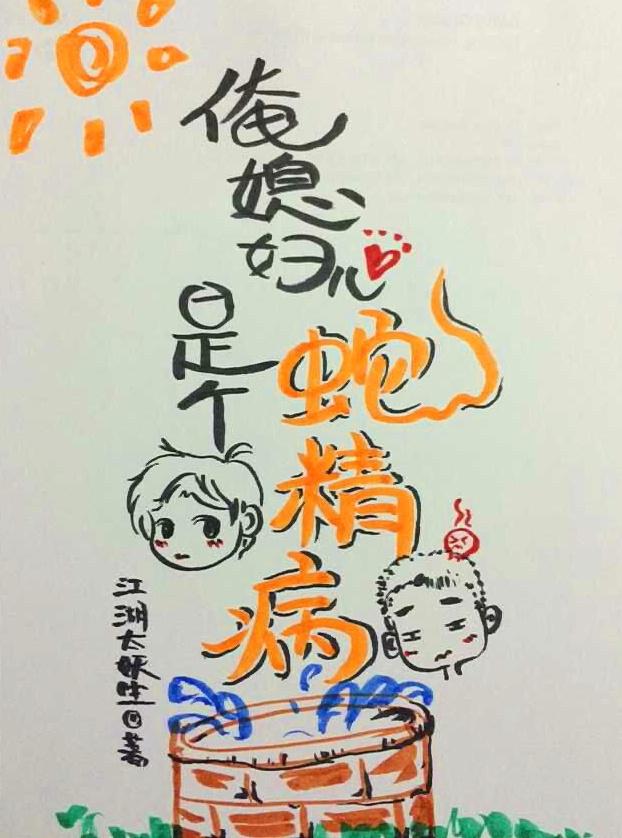 俺媳妇儿
是个
蛇精病
江湖太妖生@著